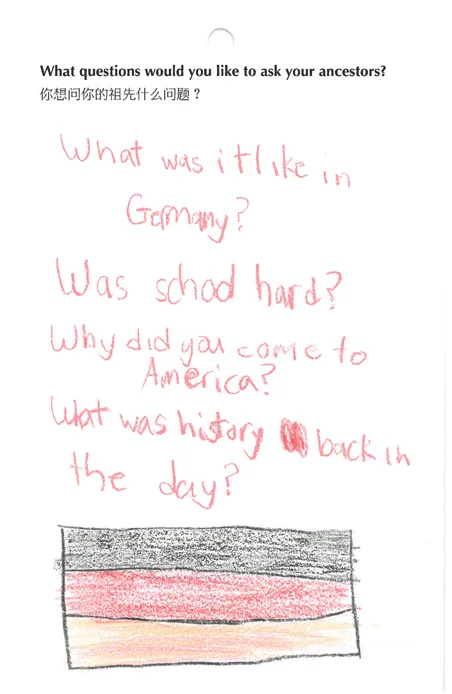 What questions would you like to ask your ancestors?
你想问你的祖先什么问题？
What was it like in
Germany?
Was school hard?
Why did you come to
America?
What was history back in
the day?